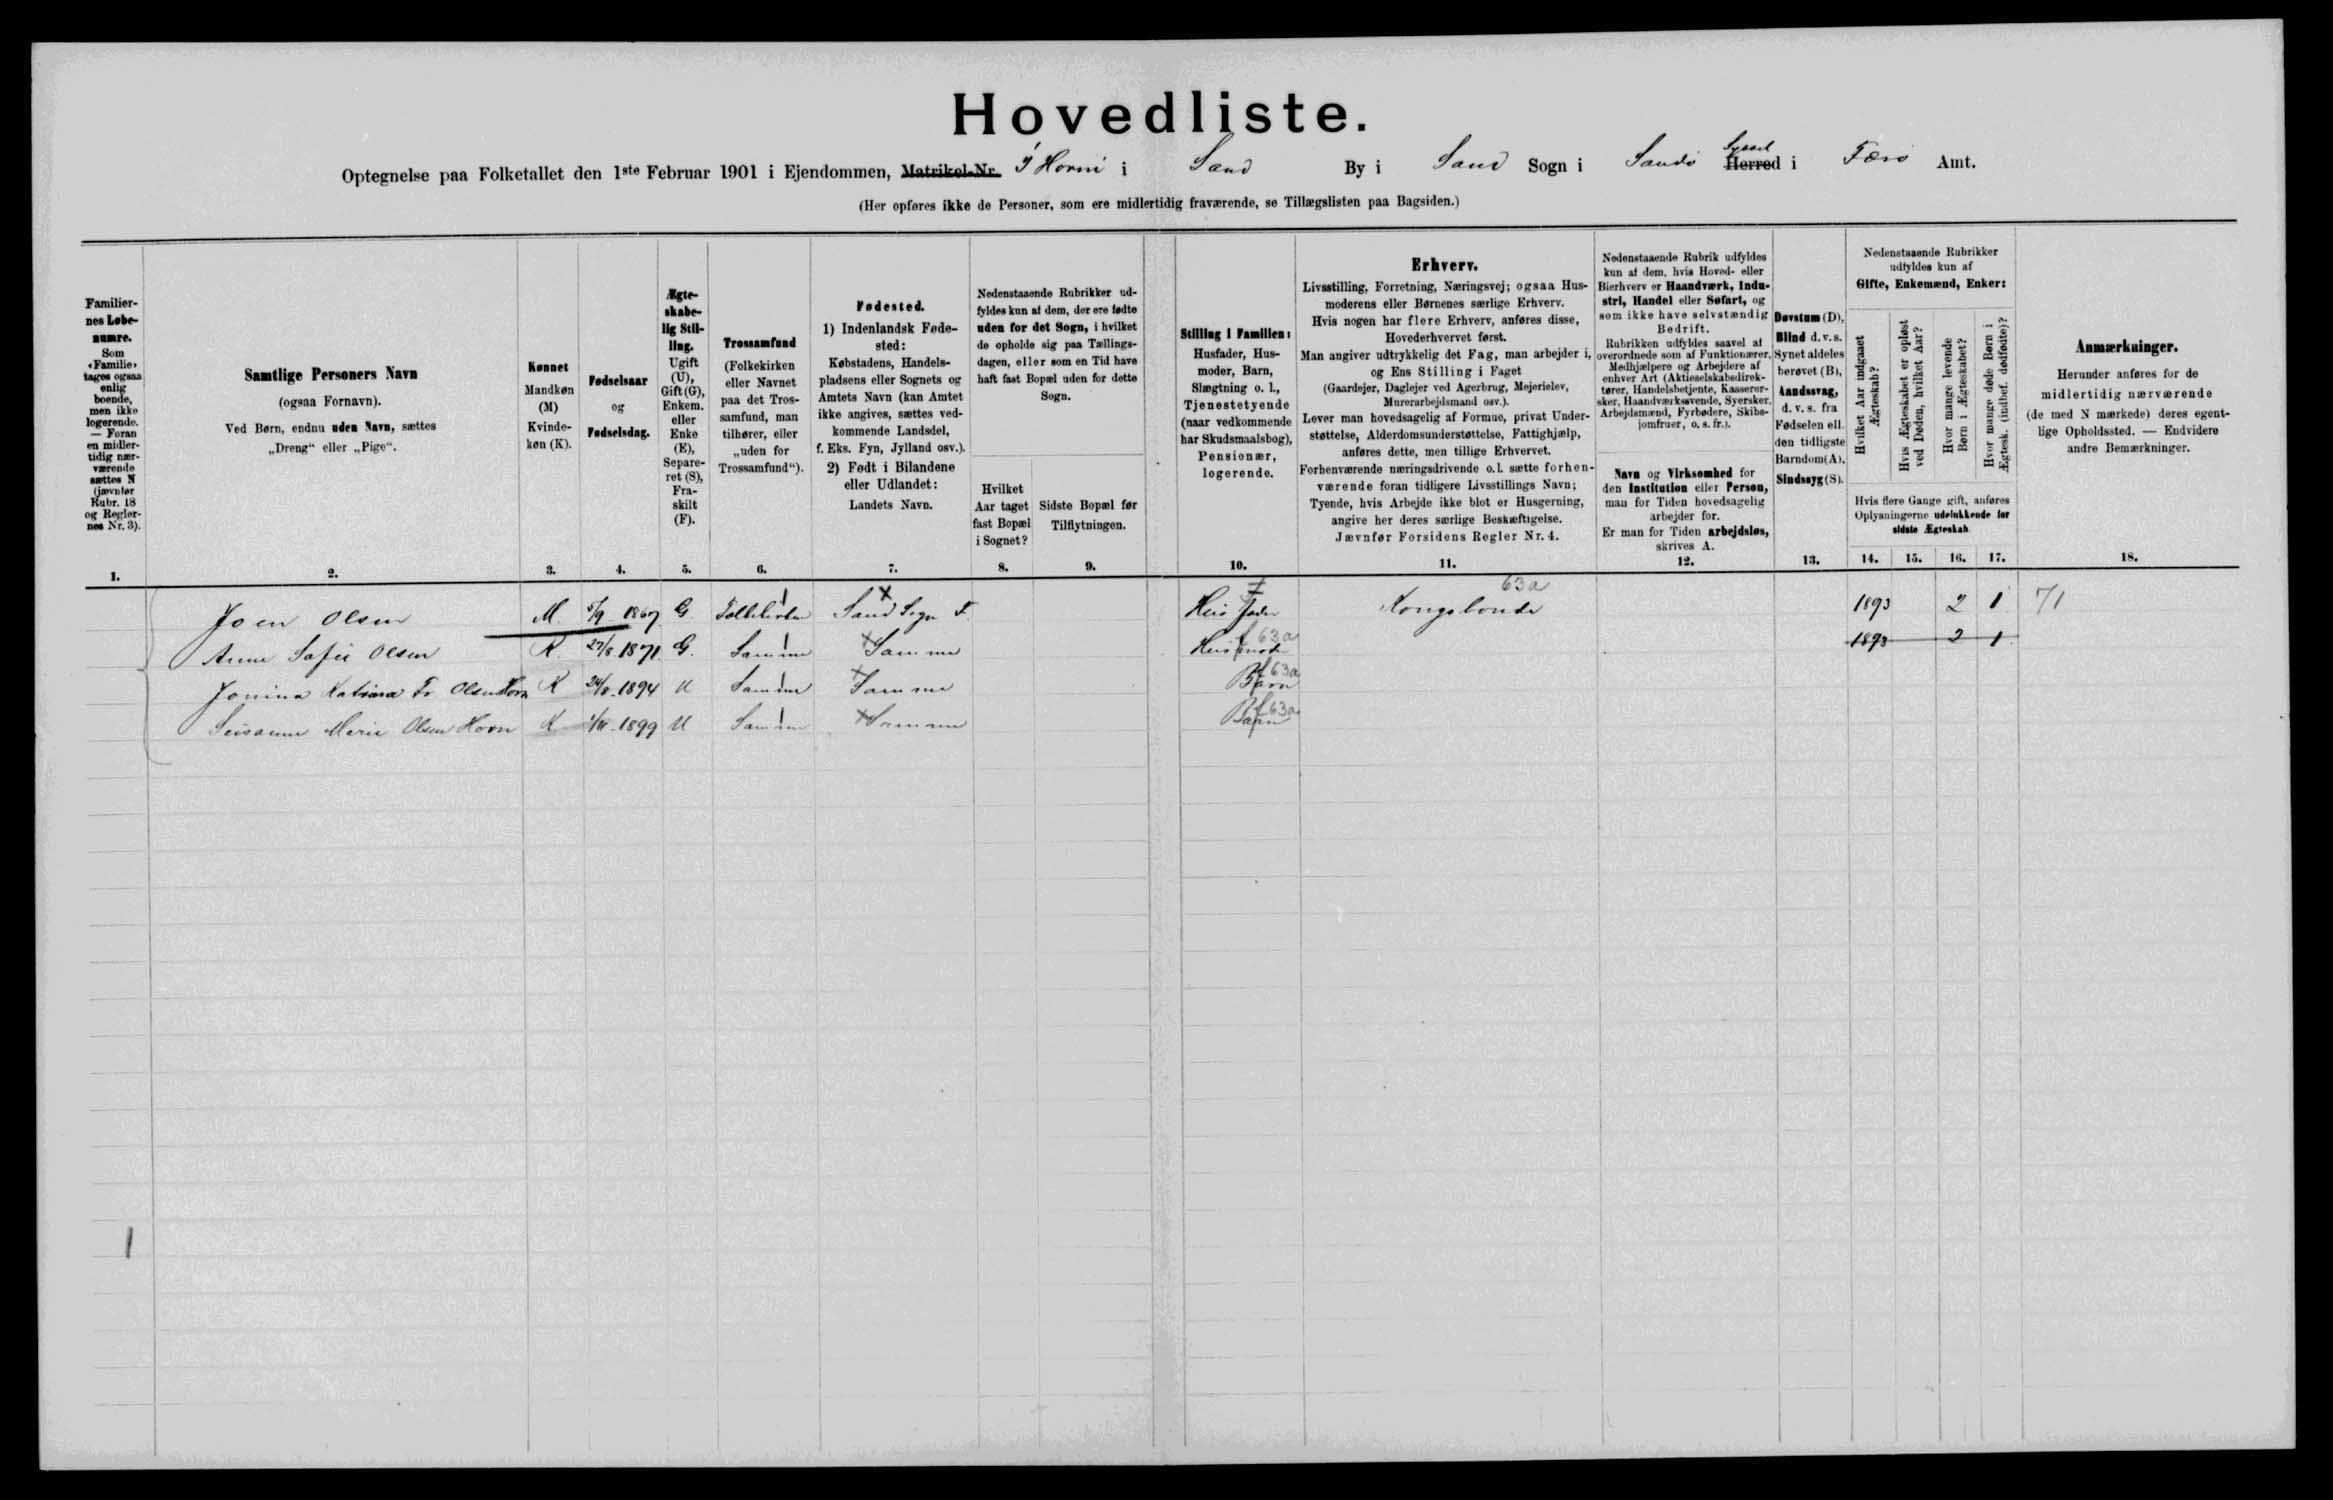 Hovedliste.
Optegnelse paa Folketallet den 1ste Februar 1901 i Ejendommen, Matrikel-Nr. I Horni i Sand By i Sand Sogn i Sandø Syssel Herred i Færø Amt.
(Her opføres ikke de Personer, som ere midlertidig fraværende, se Tillægslisten paa Bagsiden.)
Familier-
nes Løbe-
numre.
Som
«Familie»
tages ogsaa
enlig
boende,
men ikke
logerende.
— Foran
en midler-
tidig nær-
værende
sættes N
(jævnfør
Rubr. 18
og Regler-
nes Nr. 3).
1.
Samtlige Personers Navn
(ogsaa Fornavn).
Ved Børn, endnu uden Navn, sættes
„Dreng“ eller „Pige“.
2.
Kønnet
Mandkøn
(M)
Kvinde-
køn (K).
3.
Fødselsaar
og
Fødselsdag.
4.
Ægte-
skabe-
lig Stil-
ling.
Ugift
(U),
Gift (G),
Enkem.
eller
Enke
(E),
Separe-
ret (S),
Fra-
skilt
(F).
5.
Trossamfund
(Folkekirken
eller Navnet
paa det Tros-
samfund, man
tilhører, eller
„uden for
Trossamfund“).
6.
Fødested.
1) Indenlandsk Føde-
sted:
Købstadens, Handels-
pladsens eller Sognets og
Amtets Navn (kan Amtet
ikke angives, sættes ved-
kommende Landsdel,
f. Eks. Fyn, Jylland osv.).
2) Født i Bilandene
eller Udlandet:
Landets Navn.
7.
Nedenstaaende Rubrikker ud-
fyldes kun af dem, der ere fødte
uden for det Sogn, i hvilket
de opholde sig paa Tællings-
dagen, eller som en Tid have
haft fast Bopæl uden for dette
Sogn.
Hvilket
Aar taget
fast Bopæl
i Sognet?
8.
Sidste Bopæl før
Tilflytningen.
9.
Stilling i Familien:
Husfader, Hus-
moder, Barn,
Slægtning o. l.,
Tjenestetyende
(naar vedkommende
har Skudsmaalsbog),
Pensionær,
logerende.
10.
Erhverv.
Livsstilling, Forretning, Næringsvej; ogsaa Hus-
moderens eller Børnenes særlige Erhverv.
Hvis nogen har flere Erhverv, anføres disse,
Hovederhvervet først.
Man angiver udtrykkelig det Fag, man arbejder i,
og Ens Stilling i Faget
(Gaardejer, Daglejer ved Agerbrug, Mejerielev,
Murerarbejdsmand osv.).
Lever man hovedsagelig af Formue, privat Under-
støttelse, Alderdomsunderstøttelse, Fattighjælp,
anføres dette, men tillige Erhvervet.
Forhenværende næringsdrivende o. l. sætte forhen-
værende foran tidligere Livsstillings Navn;
Tyende, hvis Arbejde ikke blot er Husgerning,
angive her deres særlige Beskæftigelse.
Jævnfør Forsidens Regler Nr. 4.
11.
Nedenstaaende Rubrik udfyldes
kun af dem, hvis Hoved- eller
Bierhverv er Haandværk, Indu-
stri, Handel eller Søfart, og
som ikke have selvstændig
Bedrift.
Rubrikken udfyldes saavel af
overordnede som af Funktionærer,
Medhjælpere og Arbejdere af
enhver Art (Aktieselskabsdirek-
tører, Handelsbetjente, Kasserer-
sker, Haandværkssvende, Syersker,
Arbejdsmænd, Fyrbødere, Skibs-
jomfruer, o. s. fr.).
Navn og Virksomhed for
den Institution eller Person,
man for Tiden hovedsagelig
arbejder for.
Er man for Tiden arbejdsløs,
skrives A.
12.
Døvstum (D),
Blind d. v. s.
Synet aldeles
berøvet (B),
Aandssvag,
d. v. s. fra
Fødselen ell.
den tidligste
Barndom (A),
Sindssyg (S).
13.
Nedenstaaende Rubrikker
udfyldes kun af
Gifte, Enkemænd, Enker:
Hvilket Aar indgaaet
Ægteskab?
Hvis Ægteskabet er opløst
ved Døden, hvilket Aar?
Hvor mange levende
Børn i Ægteskabet?
Hvor mange døde Børn i
Ægtesk. (indbef. dødfødte)?
Hvis flere Gange gift, anføres
Oplysningerne udelukkende for
sidste Ægteskab.
14. 15. 16. 17.
Anmærkninger.
Herunder anføres for de
midlertidig nærværende
(de med N mærkede) deres egent-
lige Opholdssted. — Endvidere
andre Bemærkninger.
18.
63a
Joen Olsen M. 5/9 1867 G. Folkekirken Sand Sogn F. Husfader Kongsbonde 1893 2 1 71
Anne Sofie Olsen K 27/8 1871. G. Samme Samme Husmoder f 63a 1893 2 1.
Jonina Katrina Fr Olsen Horn K 24/8 1894 U Samme Samme Barn f 63a
Susanne Marie Olsen Horn K 1899 U Samme Samme Barn f 63a